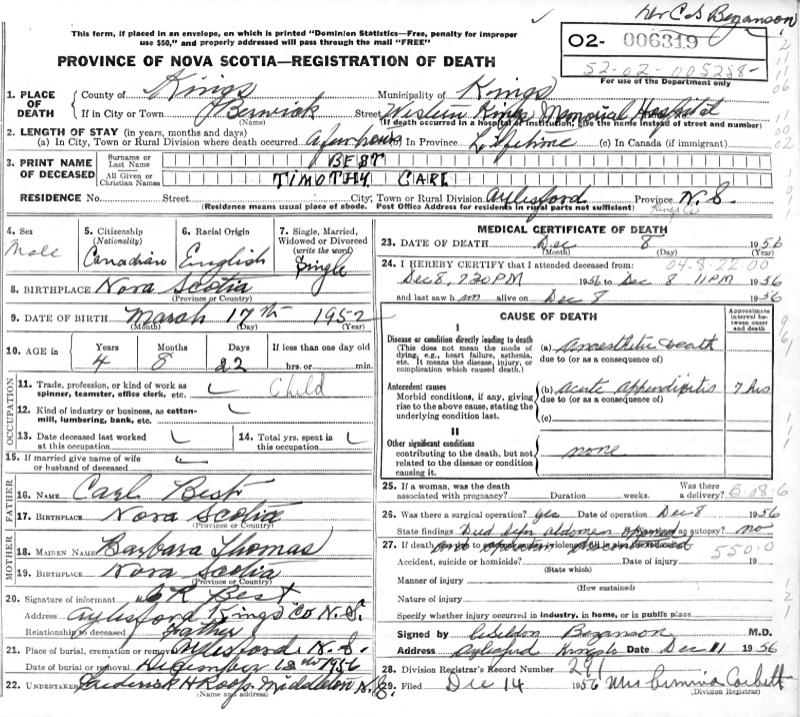 Dr C S Bezanson
This form, if placed in an envelope, on which is printed "Dominion Statistics—Free, penalty for improper
use $50," and properly addressed will pass through the mail "FREE"
PROVINCE OF NOVA SCOTIA—REGISTRATION OF DEATH
02- 006319
52-02-005288-
For use of the Department only
1. PLACE OF DEATH
County of Kings Municipality of Kings
If in City or Town Berwick Street Western Kings Memorial Hospital
(Name) (If death occurred in a hospital or institution, give the name instead of street and number)
2. LENGTH OF STAY (in years, months and days)
(a) In City, Town or Rural Division where death occurred a few hours (b) In Province Lifetime (c) In Canada (if immigrant)
3. PRINT NAME OF DECEASED
Surname or Last Name BEST
All Given or Christian Names TIMOTHY CARL
RESIDENCE No. Street City, Town or Rural Division Aylesford Province N.S.
(Residence means usual place of abode. Post Office Address for residents in rural parts not sufficient) Kings Co
4. Sex Male
5. Citizenship (Nationality) Canadian
6. Racial Origin English
7. Single, Married, Widowed or Divorced (write the word) Single
8. BIRTHPLACE Nova Scotia
(Province or Country)
9. DATE OF BIRTH March 17th 1952
(Month) (Day) (Year)
10. AGE in Years Months Days If less than one day old
4 8 22 hrs. or min.
OCCUPATION
11. Trade, profession, or kind of work as spinner, teamster, office clerk, etc. Child
12. Kind of industry or business, as cotton-mill, lumbering, bank, etc.
13. Date deceased last worked at this occupation
14. Total yrs. spent in this occupation
15. If married give name of wife or husband of deceased
FATHER
16. NAME Carl Best
17. BIRTHPLACE Nova Scotia
(Province or Country)
MOTHER
18. MAIDEN NAME Barbara Thomas
19. BIRTHPLACE Nova Scotia
(Province or Country)
20. Signature of informant C R Best
Address Aylesford Kings Co N.S.
Relationship to deceased Father
21. Place of burial, cremation or removal Aylesford N.S.
Date of burial or removal December 12th 1956
22. UNDERTAKER Frederick H Roop Middleton N.S.
(Name and address)
MEDICAL CERTIFICATE OF DEATH
23. DATE OF DEATH Dec 8 1956
(Month) (Day) (Year)
24. I HEREBY CERTIFY that I attended deceased from: 04-8-22-00
Dec 8, 7 30 PM 1956 to Dec 8 11 PM 1956
and last saw h im alive on Dec 8 1956
CAUSE OF DEATH
Approximate interval between onset and death
I
Disease or condition directly leading to death
(This does not mean the mode of dying, e.g., heart failure, asthenia, etc. It means the disease, injury, or complication which caused death.)
(a) Anaesthetic death
due to (or as a consequence of)
Antecedent causes
Morbid conditions, if any, giving rise to the above cause, stating the underlying condition last.
(b) Acute Appendicitis 7 hrs
due to (or as a consequence of)
(c)
II
Other significant conditions
contributing to the death, but not related to the disease or condition causing it.
none
25. If a woman, was the death associated with pregnancy? Duration weeks. Was there a delivery?
26. Was there a surgical operation? yes Date of operation Dec 8 1956
State findings Died before abdomen opened Was there an autopsy? no
27. If death
550.0
Accident, suicide or homicide? Date of injury 19
(State which)
Manner of injury
(How sustained)
Nature of injury
Specify whether injury occurred in industry, in home, or in public place
Signed by C Sheldon Bezanson M.D.
Address Aylesford Kings Co Date Dec 11 1956
28. Division Registrar's Record Number 291
29. Filed Dec 14 1956 Mrs Corbett
(Division Registrar)